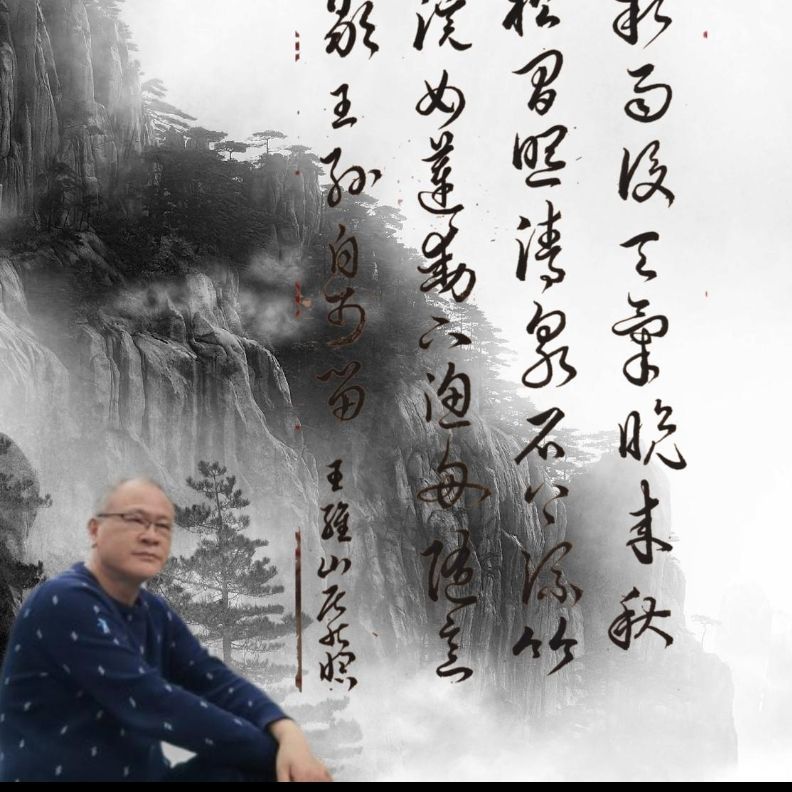 新雨後天氣晚來秋
松間照清泉石上流竹
浣女蓮動下漁舟隨意
歇王孫自可留
王維山居秋暝